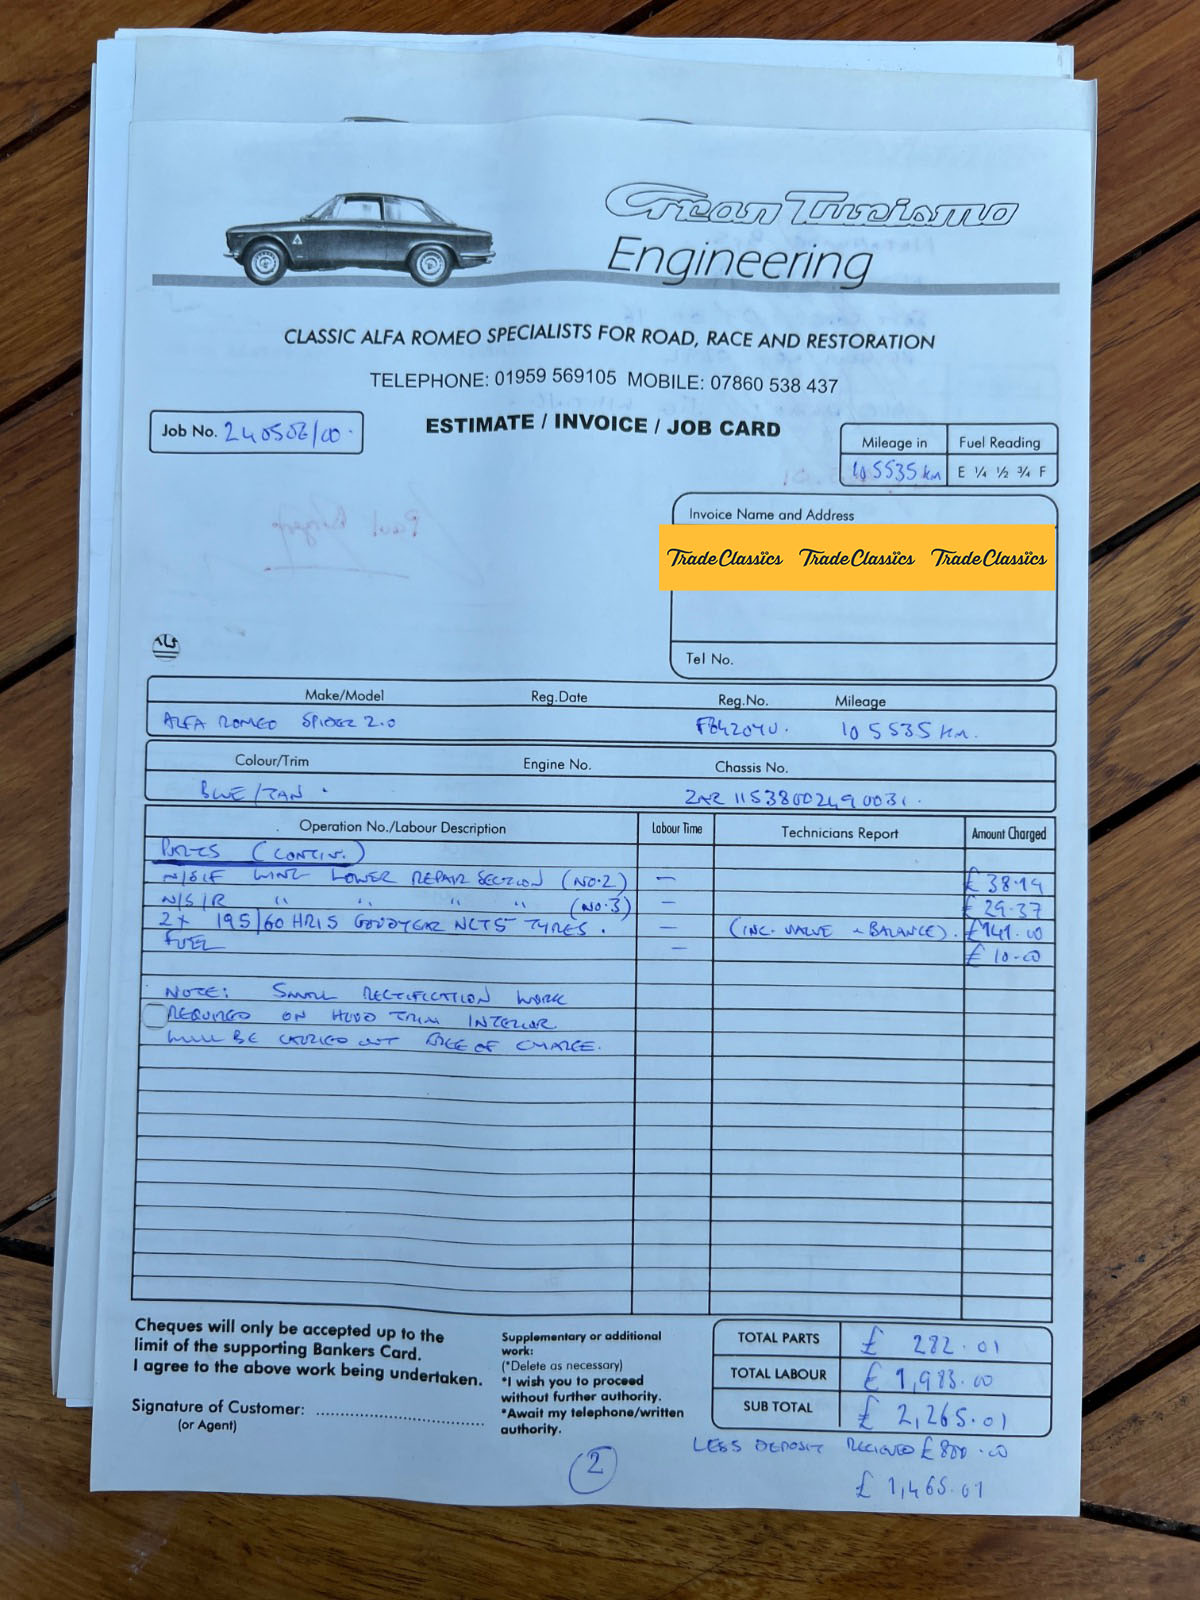 Gran Turismo
Engineering
CLASSIC ALFA ROMEO SPECIALISTS FOR ROAD, RACE AND RESTORATION
TELEPHONE: 01959 569105 MOBILE: 07860 538 437
Job No. 240506/00.
ESTIMATE / INVOICE / JOB CARD
Mileage in Fuel Reading
105535 km E ¼ ½ ¾ F
Invoice Name and Address
TradeClassics TradeClassics TradeClassics
Tel No.
Make/Model Reg.Date Reg.No. Mileage
ALFA ROMEO SPIDER 2.0 105535 KM.
Colour/Trim Engine No. Chassis No.
BLUE/TAN. ZAR 11538002490031.
Operation No./Labour Description Labour Time Technicians Report Amount Charged
PARTS (CONTIN.)
N/S/F WING LOWER REPAIR SECTION (NO.2) — £ 38.14
N/S/R " " " " (NO.3) — £ 29.37
2x 195/60 HR15 GOODYEAR NCT5 TYRES. — (INC. VALVE & BALANCE). £141.00
FUEL — £ 10.00
NOTE: SMALL RECTIFICATION WORK
REQUIRED ON HOOD TRIM INTERIOR
WILL BE CARRIED OUT FREE OF CHARGE.
Cheques will only be accepted up to the
limit of the supporting Bankers Card.
I agree to the above work being undertaken.
Signature of Customer: ..............................
(or Agent)
Supplementary or additional
work:
(*Delete as necessary)
*I wish you to proceed
without further authority.
*Await my telephone/written
authority.
TOTAL PARTS £ 282.01
TOTAL LABOUR £ 1,983.00
SUB TOTAL £ 2,265.01
LESS DEPOSIT RECIEVED £800.00
£ 1,465.01
2